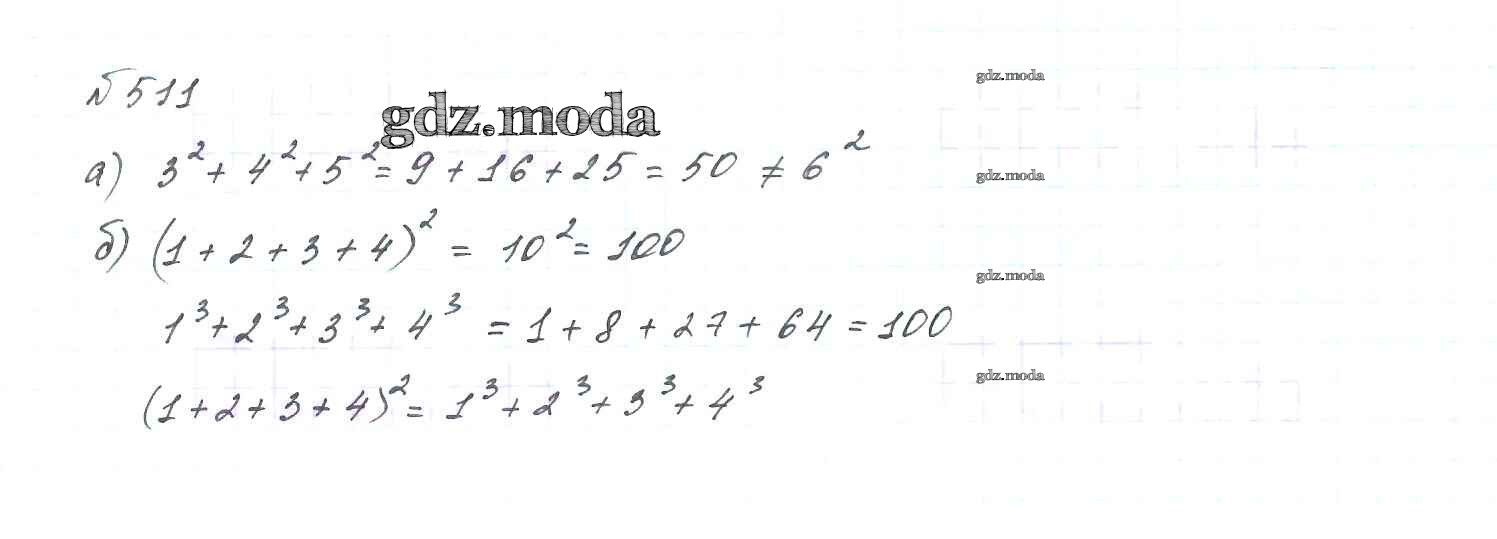 №511
gdz.moda
gdz.moda
а) 3² + 4² + 5² = 9 + 16 + 25 = 50 ≠ 6²
gdz.moda
б) (1 + 2 + 3 + 4)² = 10² = 100
gdz.moda
1³ + 2³ + 3³ + 4³ = 1 + 8 + 27 + 64 = 100
gdz.moda
(1 + 2 + 3 + 4)² = 1³ + 2³ + 3³ + 4³